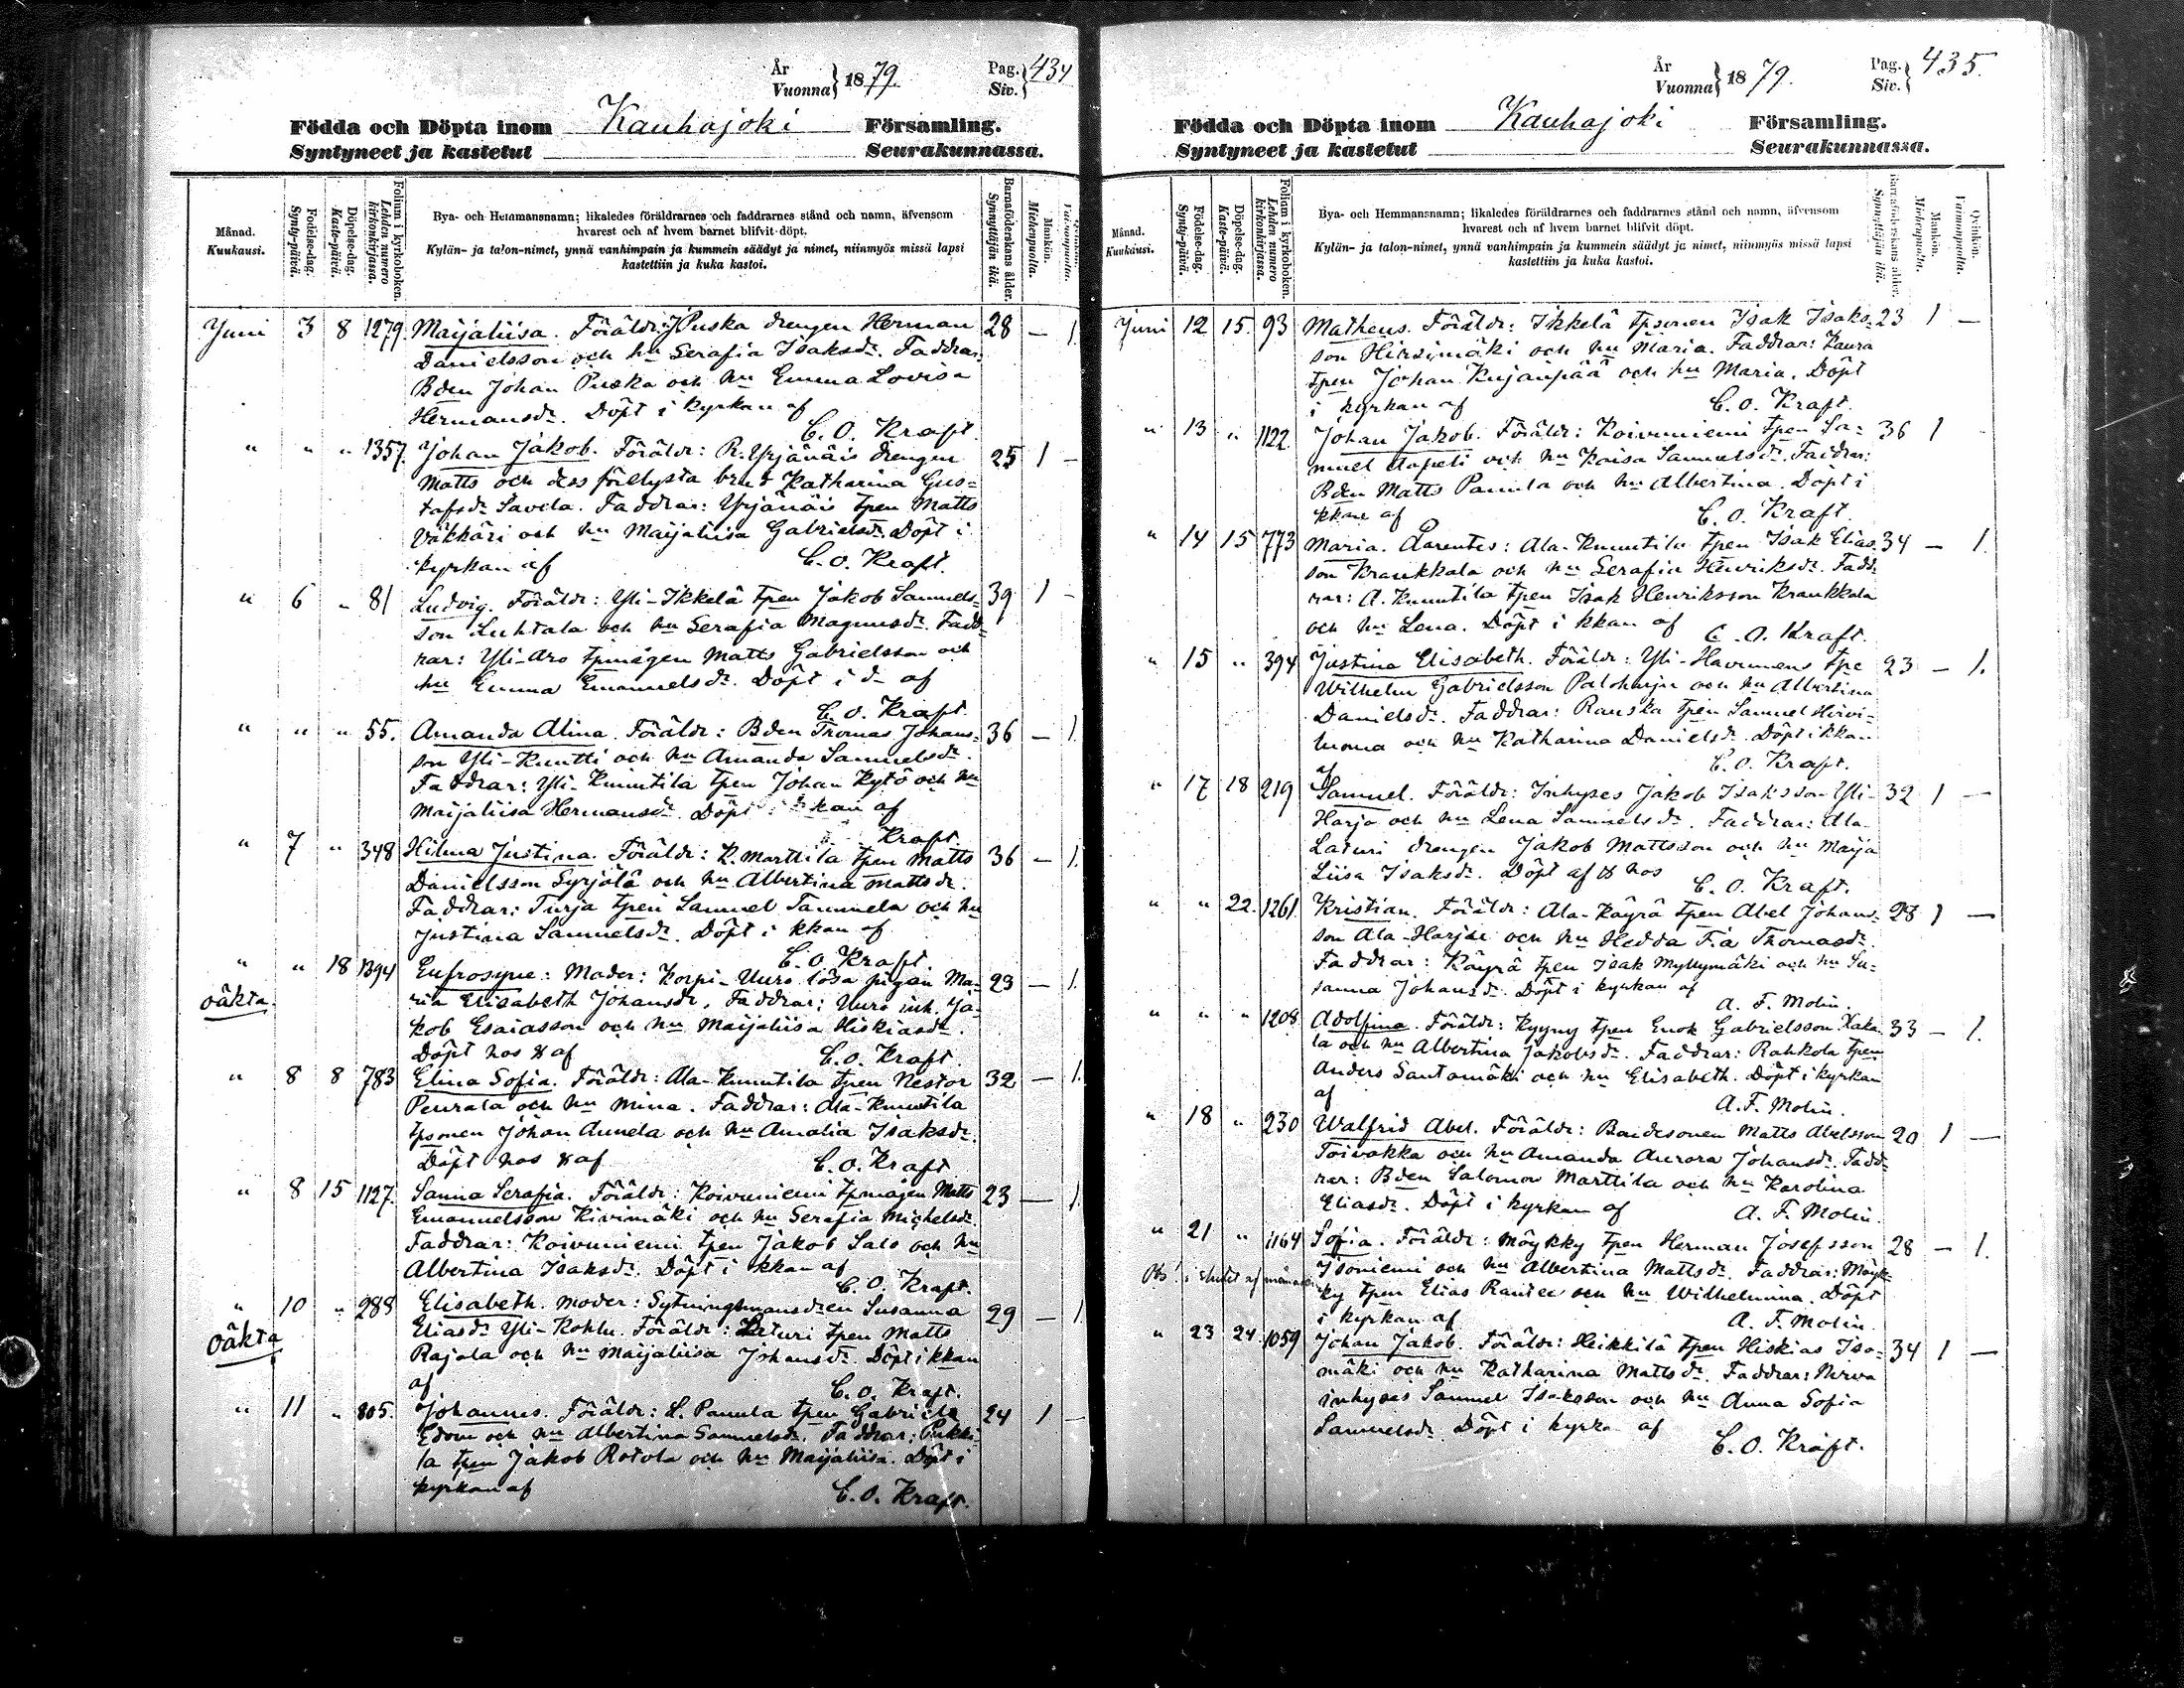 År
Vuonna} 1879.
Pag.
Siv.} 434
Födda och Döpta inom Kauhajoki Församling.
Syntyneet ja kastetut Seurakunnassa.
Månad.
Kuukausi.
Födelse-dag.
Synty-päivä.
Döpelse-dag.
Kaste-päivä.
Folium i kyrkoboken.
Lehden numero kirkonkirjassa.
Bya- och Hemmansnamn; likaledes föräldrarnes och faddrarnes stånd och namn, äfvensom
hvarest och af hvem barnet blifvit döpt.
Kylän- ja talon-nimet, ynnä vanhimpain ja kummein säädyt ja nimet, niinmyös missä lapsi
kastettiin ja kuka kastoi.
Barnaföderskans ålder.
Synnyttäjän ikä.
Mankön.
Miehenpuolta.
Juni 3 8 1279. Maijaliisa. Föräldr: Puska drengen Herman 28 — 1.
Danielsson och hu Serafia Isaksdr. Faddrar:
Bden Johan Puska och hu Emma Lovisa
Hermansdr. Döpt i kyrkan af
C. O. Kraft.
" " " 1357. Johan Jakob. Föräldr: R. Yrjänäis drengen 25 1 —
Matts och dess förelysta brud Katharina Gus-
tafsdr Savela. Faddrar: Yrjänäis tpen Matts
Väkkäri och hu Maijaliisa Gabrielsdr. Döpt i
kyrkan af C. O. Kraft.
" 6 " 81 Ludvig. Föräldr: Yli-Ikkelä tpen Jakob Samuels- 39 1 —
son Luhtala och hu Serafia Magnusdr. Fadd-
rar: Yli-Aro tpmågen Matts Gabrielsson och
hu Emma Emanuelsdr. Döpt i do af
C. O. Kraft.
" " " 55. Amanda Alina. Föräldr: Bden Thomas Johans- 36 — 1.
son Yli-Knutti och hu Amanda Samuelsdr.
Faddrar: Yli-Knuutila tpen Johan Kytö och hu
Maijaliisa Hermansdr. Döpt i kkan af
Kraft.
" 7 " 348 Hilma Justina. Föräldr: K. Marttila tpen Matts 36 — 1.
Danielsson Syrjälä och hu Albertina Mattsdr.
Faddrar: Turja tpen Samuel Tammela och hu
Justina Samuelsdr. Döpt i kkan af
C. O. Kraft.
" " 18 1394 Eufrosyne: Moder: Korpi-Uuro lösa pigan Ma- 23 — 1.
oäkta. ria Elisabeth Johansdr. Faddrar: Uuro inh. Ja-
kob Esaiasson och hu Maijaliisa Hiskiasdr.
Döpt hos af C. O. Kraft.
" 8 8 783 Elina Sofia. Föräldr: Ala-Knuutila tpen Nestor 32 — 1.
Peurala och hu Mina. Faddrar: Ala-Knuutila
tpsonen Johan Annela och hu Amalia Isaksdr.
Döpt hos af C. O. Kraft
" 8 15 1127. Sanna Serafia. Föräldr: Koivuniemi tpmågen Matts 23 — 1.
Emanuelsson Kivimäki och hu Serafia Michelsdr.
Faddrar: Koivuniemi tpen Jakob Salo och hu
Albertina Isaksdr. Döpt i kkan af
C. O. Kraft.
" 10 " 288 Elisabeth. Moder: Sytningsmansdren Susanna 29 — 1
oäkta Eliasdr Yli-Kohlu. Föräldr: Laturi tpen Matts
Rajala och hu Maijaliisa Johansdr. Döpt i kkan
af C. O. Kraft.
" 11 " 805. Johannes. Föräldr: L. Panula tpen Gabriel 24 1 —
Edom och hu Albertina Samuelsdr. Faddrar: Pukki-
la tpen Jakob Rotola och hu Maijaliisa. Döpt i
kyrkan af C. O. Kraft.
År
Vuonna} 1879.
Pag.
Siv.} 435.
Födda och Döpta inom Kauhajoki Församling.
Syntyneet ja kastetut Seurakunnassa.
Månad.
Kuukausi.
Födelse-dag.
Synty-päivä.
Döpelse-dag.
Kaste-päivä.
Folium i kyrkoboken.
Lehden numero kirkonkirjassa.
Bya- och Hemmansnamn; likaledes föräldrarnes och faddrarnes stånd och namn, äfvensom
hvarest och af hvem barnet blifvit döpt.
Kylän- ja talon-nimet, ynnä vanhimpain ja kummein säädyt ja nimet, niinmyös missä lapsi
kastettiin ja kuka kastoi.
Barnaföderskans ålder.
Synnyttäjän ikä.
Mankön.
Miehenpuolta.
Qvinkön.
Vaimonpuolta.
Juni 12 15. 93 Matheus. Föräldr: Ikkelä tpsonen Isak Isaks- 23 1 —
son Hirsimäki och hu Maria. Faddrar: Kaura
tpen Johan Kujanpää och hu Maria. Döpt
i kyrkan af C. O. Kraft.
" 13 " 1122. Johan Jakob. Föräldr: Koivuniemi tpen Sa- 36 1
muel Aapeli och hu Kaisa Samuelsdr. Faddrar:
Bden Matts Panula och hu Albertina. Döpt i
kkan af C. O. Kraft.
" 14 15 773 Maria. Parentes: Ala-Knuutila tpen Isak Elias- 34 — 1.
son Kraukkala och hu Serafia Henriksdr. Fadd-
rar: A. Knuutila tpen Isak Henriksson Kraukkala
och hu Lena. Döpt i kkan af C. O. Kraft.
" 15 " 394 Justina Elisabeth. Föräldr: Yli-Havunens tpe 23 — 1.
Wilhelm Gabrielsson Paloharju och hu Albertina
Danielsdr. Faddrar: Rauska tpen Samuel Hirvi-
luoma och hu Katharina Danielsdr. Döpt i kkan
af C. O. Kraft.
" 17 18 219 Samuel. Föräldr: Inhyses Jakob Isaksson Yli- 32 1 —
Harjo och hu Lena Samuelsdr. Faddrar: Ala-
Laturi drengen Jakob Mattsson och hu Maija
Liisa Isaksdr. Döpt af hos C. O. Kraft.
" " 22. 1261. Kristian. Föräldr: Ala-Käyrä tpen Abel Johans- 28 1 —
son Ala-Harjae och hu Hedda F:a Thomasdr.
Faddrar: Käyrä tpen Isak Myllymäki och hu Su-
sanna Johansdr. Döpt i kyrkan af
A. F. Molin.
" " " 1208 Adolfina. Föräldr: Kyyny tpen Enok Gabrielsson Kaka- 33 — 1.
la och hu Albertina Jakobsdr. Faddrar: Rahkola tpen
Anders Santamäki och hu Elisabeth. Döpt i kyrkan
af A. F. Molin.
" 18 " 230 Walfrid Abel. Föräldr: Bondesonen Matts Abelsson 20 1 —
Toivakka och hu Amanda Aurora Johansdr. Fadd-
rar: Bden Salomon Marttila och hu Karolina
Eliasdr. Döpt i kyrkan af A. F. Molin.
" 21 " 1164 Sofia. Föräldr: Möykky tpen Herman Josefsson 28 — 1.
Obs! i slutet af månaden. Isoniemi och hu Albertina Mattsdr. Faddrar: Möyk-
ky tpen Elias Rantee och hu Wilhelmina. Döpt
i kyrkan af A. F. Molin.
" 23 24 1059 Johan Jakob. Föräldr: Heikkilä tpen Hiskias Iso- 34 1 —
mäki och hu Katharina Mattsdr. Faddrar: Nirva
inhyses Samuel Isaksson och hu Anna Sofia
Samuelsdr. Döpt i kyrka af
C. O. Kraft.